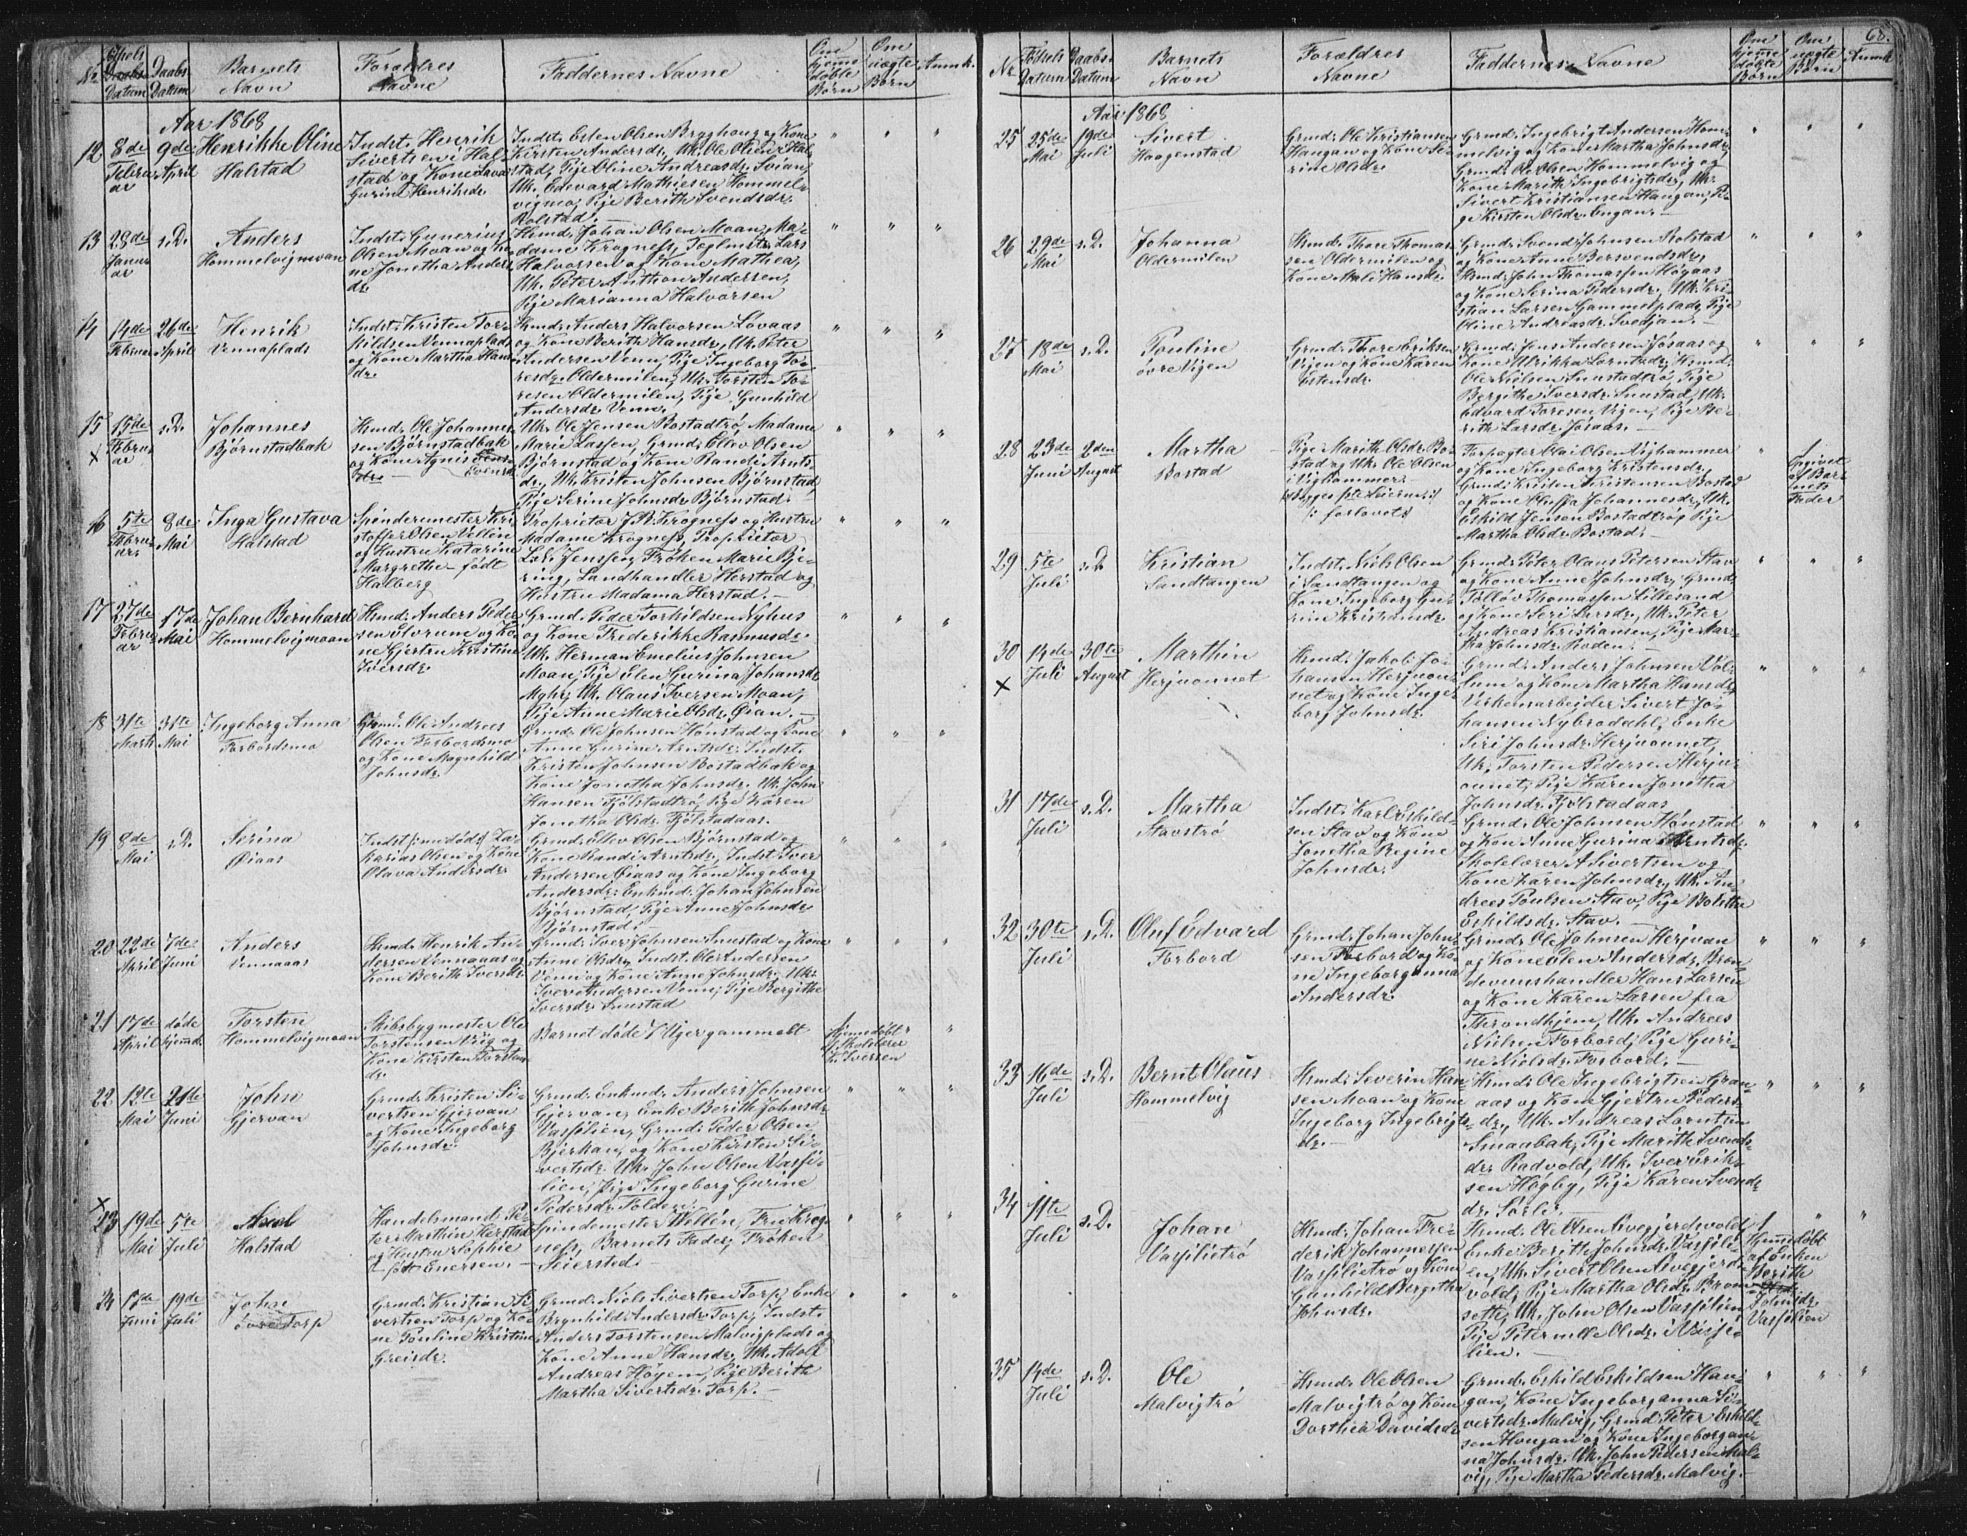 68.
Nr.
Fødsels Datum
Daabs Datum
Barnets Navn
Forældres Navne
Faddernes Navne
Om hjemmedøbte Børn
Om uægte Børn
Anmk.
Aar 1868
12
8de Februar
9de April
Henrikke Oline
Halstad
Indst. Henrik
Sivertsen i Hal-
stad og Kone Lava
Gurine Henriksdr.
Kirsten Andersdr., Uk. Ole Olsen Hal-
stad, Pige Oline Andreasdr. Svian,
Uk. Edevard Mathiesen Hommel-
vigmo, Pige Berith Svendsdr.
Rolstad.
13
28de Januar
s.D.
Anders
Hommelvigmoan
Indst. Gunerius
Olsen Moan og Ko-
ne Jonetha Anders-
dr.
Husmd. Johan Olsen Moan, Ma-
dame Krogness, Teglmstr. Lars
Halvorsen og Kone Mathea,
Uk. Peter Anthon Andersen,
Pige Marianna Halvorsen
14
14de Februar
26de April
Henrik
Vennaplads
Indst. Kristen Tor-
kildsen Vennaplads
og Kone Martha Hans-
dr.
Husmd. Anders Halvorsen Lovaas
og Kone Berith Hansdr., Uk. Peter
Andersen Venn, Pige Ingeborg To-
resdr. Oldermilen, Uk. Torsten To-
resen Oldermilen, Pige Gunhild
Andersdr. Venn.
15
×
15de Februar
s.D.
Johannes
Bjørnstadbak
Husmd. Ole Johannes-
sen Bjørnstadbak
og Kone Agnis
Uk. Ole Jensen Bostadtrø, Madame
Marie Lassen, Grmd. Ellev Olsen
Bjørnstad og Kone Randi Arnts-
dr., Uk. Kristen Johnsen Bjørnstad,
Pige Serine Johnsdr. Bjørnstad.
16
5te Februar
8de Mai
Inga Gustava
Halstad
Spindemester Kri-
stoffer Olsen Vellén
og Hustru Katarine
Margrethe født
Halberg
Proprietær J. B. Krogness og Hustru
Madame Krogness, Proprietær
Lor. Jenssen, Frøken Marie Bje-
ring, Landhandler Herstad og
Hustru Madama Herstad.
17
27de Februar
17de Mai
Johan Bernhard
Hommelvigmoan
Husmd. Anders Peder-
sen Elvrum og Ko-
ne Gjerten Kristine
Iversdr.
Grmd. Peder Torkildsen Nyhus
og Kone Frederikke Rasmusdr.
Uk. Herman Emelius Johnsen
Moan, Pige Elen Gurina Johansdr.
Uk. Olaus Iversen Moan,
Pige Anne Marie Olsdr. Øian.
18
31te Marts
31te Mai
Ingeborg Anna
Forbordsmo
Grmd. Ole Andreas
Olsen Forbordsmo
og Kone Magnhild
Johnsdr.
Grmd. Ole Johnsen Hønstad og Kone
Anne Gurine Arntsdr. Indst.
Kristen Johnsen Bostadbak og
Kone Jonetha Johnsdr. Uk. John
Hansen Fjølstadtrø, Pige Karen
Jonetha Olsdr. Fjølstadaas.
19
8de Mai
s.D.
Serina
Øiaas
Indst. (: nu død :) Za-
karias Olsen og Kone
Olava Andersdr.
Grmd. Ellev Olsen Bjørnstad og
Kone Randi Arntsdr., Indst. Iver
Andersen Øiaas og Kone Ingeborg
Andersdr. Enkmd. Johan Johnsen
Bjørnstad, Pige Anne Johnsdr.
Bjørnstad.
20
22de April
7de Juni
Anders
Vennaaas
Husmd. Henrik An-
dersen Vennaaas og
Kone Berith Iversdr.
Grmd. Iver Johnsen Snustad og Kone
Anne Olsdr., Indst. Ole Andersen
Venn og Kone Anne Johnsdr., Uk.
Iver Andersen Venn, Pige Bergithe
Iversdr. Snustad
21
17de April
døde hjemdt.
Torsten
Hommelvigmoan
Skibsbygmester Ole
Torstensen Vrig og
Kone Kirsten Torstens-
dr.
Barnet døde 7 Uger gammelt
Hjemmedøbt af Skolelærer K. Iversen
22
12te Mai
21de Juni
John
Gjervan
Grmd. Kristen Si-
vertsen Gjervan
og Kone Ingeborg
Johnsdr.
Grmd. Enkmd. Anders Johnsen
Gjervan, Enke Berith Johnsdr.
Vasfilien, Grmd. Peder Olsen
Bjerkan, og Kone Kirsten Si-
vertsdr. Uk. John Olsen Vasfi-
lien, Pige Ingeborg Gurine
Pedersdr. Folden.
×
23
19de Mai
5te Juli
Axel
Halstad
Handelsmand Pe-
ter Marthin Herstad
og Hustru Sophie
født Enersen.
Spindemester Wellén, Fru Krog-
ness, Barnets Fader, Frøken
Seiersted.
24
17de Juni
19de Juli
John
øvre Torp
Grmd. Kristian Si-
vertsen Torp og Ko-
ne Pauline Kristine
Greisdr.
Grmd. Niels Sivertsen Torp, Enke
Brynhild Andersdr. Torp, Indst.
Anders Torstensen Malvigplads og
Kone Anne Hansdr., Uk. Adolf
Andreas Høyem, Pige Berith
Martha Sivertsdr. Torp.
Nr.
Fødsels Datum
Daabs Datum
Barnets Navn
Forældres Navne
Faddernes Navne
Om hjemmedøbte Børn
Om uægte Børn
Anmk.
Aar 1868
25
25de Mai
19de Juli
Sivert
Haugenstad
Grmd. Ole Kristiansen
Haugan og Kone Se-
rine Olsdr.
Grmd. Ingebrigt Andersen Hom-
melvig og Kone Martha Johnsdr.
Grmd. Ole Olsen Hommelvig og
Kone Marith Ingebrigtsdr., Uk.
Sivert Kristiansen Haugan, Pi-
ge Kirsten Olsdr. Engan.
26
29de Mai
s.D.
Johanna
Oldermilen
Husmd. Thore Thomas-
sen Oldermilen og
Kone Mali Hansdr.
Grmd. Svend Johnsen Rolstad
og Kone Anne Bersvendsdr.,
Husmd. John Thomassen Høgaas
og Kone Serina Pedersdr., Uk. Kri-
stian Larsen Gammelplads, Pige
Oline Andreasdr. Svedjan.
27
18de Mai
s.D.
Pauline
øvre Vigen
Grmd. Thore Eriksen
Vigen og Kone Karen
Estensdr.
Grmd. Jens Andersen Jøsaas og
Kone Ulrikka Lorntsdr., Husmd.
Ole Nielsen Snustadtrø, Pige
Bergithe Iversdr. Snustad, Uk.
Edvard Toresen Vigen, Pige Be-
rith Larsdr. Jøsaas.
28
23de Juni
2den August
Martha
Bostad
Pige Marith Olsdr. Bo-
stad og Uk. Ole Olsen
i Vighammer.
(: Begges 1ste Leierm. :)
(: forlovet :)
Forpagter Olai Olsen Vighammer
og Kone Ingeborg Kristensdr.,
Grmd. Kristen Kristensen Bostad
og Kone Oluffa Johannesdr., Uk.
Eskild Jensen Bostadtrø, Pige
Martha Olsdr. Bostad.
1 Opgivet af Barnets Fader
29
5te Juli
s.D.
Kristian
Sandtangen
Indst. Niels Olsen
i Sandtangen og
Kone Ingeborg Gu-
rine Kristensdr.
Grmd. Peter Olaus Petersen Stav
og Kone Anne Johnsdr., Grmd.
Tølløv Thomassen Lillesand
og Kone Seri Larsdr., Uk. Peter
Andreas Kristiansen, Pige Mar-
tha Johnsdr. Roden.
30
×
14de Juli
30te August
Marthin
Herjuonnet
Husmd. Jakob Jo-
hansen Herjuon-
net og Kone Inge-
borg Johnsdr.
Grmd. Anders Johnsen Vol-
lum og Kone Martha Hansdr.
Verksmarbeider Sivert Jo-
hansen Nybrodahl, Enke
Siri Johnsdr. Herjuonnet,
Uk. Torsten Pedersen Herju-
onnet, Pige Karen Jonetha
Johnsdr. Fjølstadaas
31
17de Juli
s.D.
Martha
Stavstrø
Indst. Karl Eskild-
sen Stav og Kone
Jonetha Regine
Johnsdr.
Grmd. Ole Johnsen Hønstad
og Kon Anne Gurina Arntsdr.
Skolelærer A. Sivertsen og
Kone Karen Johnsdr., Uk. An-
dreas Poulsen Stav, Pige Boletta
Eskildsdr. Stav.
32
30te Juli
s.D.
Oluf Edvard
Forbord
Grmd. Johan John-
sen Forbord og Ko-
ne Ingeboranna
Andersdr.
Grmd. Ole Johnsen Herjuan
og Kone Elen Andersdr., Bræn-
deviinshandler Hans Larsen
og Kone Karen Larsen fra
Throndhjem, Uk. Andreas
Nielsen Forbord, Pige Guri-
ne Nielsdr. Forbord.
33
16de Juli
s.D.
Bernt Olaus
Hommelvig
Husmd. Severin Han-
sen Moan og Kone
Ingeborg Ingebrigts-
dr.
Husmd. Ole Ingebrigtsen Gran-
aas og Kone Gjertru Peders-
dr., Uk. Andreas Lorntsen
Smaabak, Pige Marith Svends-
dr. Rødvold, Uk. Iver Erik-
sen Høgby, Pige Karen Svends-
dr. Sørli.
34
11te Juli
s.D.
Johan
Vasfilietrø
Husmd. Johan Fre-
derik Johannessen
Vasfilietrø og Kone
Gunhild Bergitha
Johnsdr.
Husmd. Ole Olsen Avegjerdsvold,
Enke Berith Johnsdr. Vasfili-
en, Uk. Sivert Olsen Avegjerds-
vold, Pige Martha Olsdr. Brom-
seth, Uk. John Olsen Vasfilien
Pige Peternille Olsdr. i Vasfi-
lien.
1 Hjemmedøbt af Enken Berithe Johnsdr. Vasfilien
35
14de Juli
s.D.
Ole
Malvigtrø
Husmd. Ole Olsen
Malvigtrø og Kone
Dorthea Davidsdr.
Grmd. Eskild Eskildsen Hau-
gan, Kone Ingeboranna Si-
vertsdr. Malvig, Grmd. Peter Eskild-
sen Haugan og Kone Ingeborgan-
na Johnsdr. Uk. John Pedersen Mal-
vig, Pige Martha Pedersdr. Malvig.